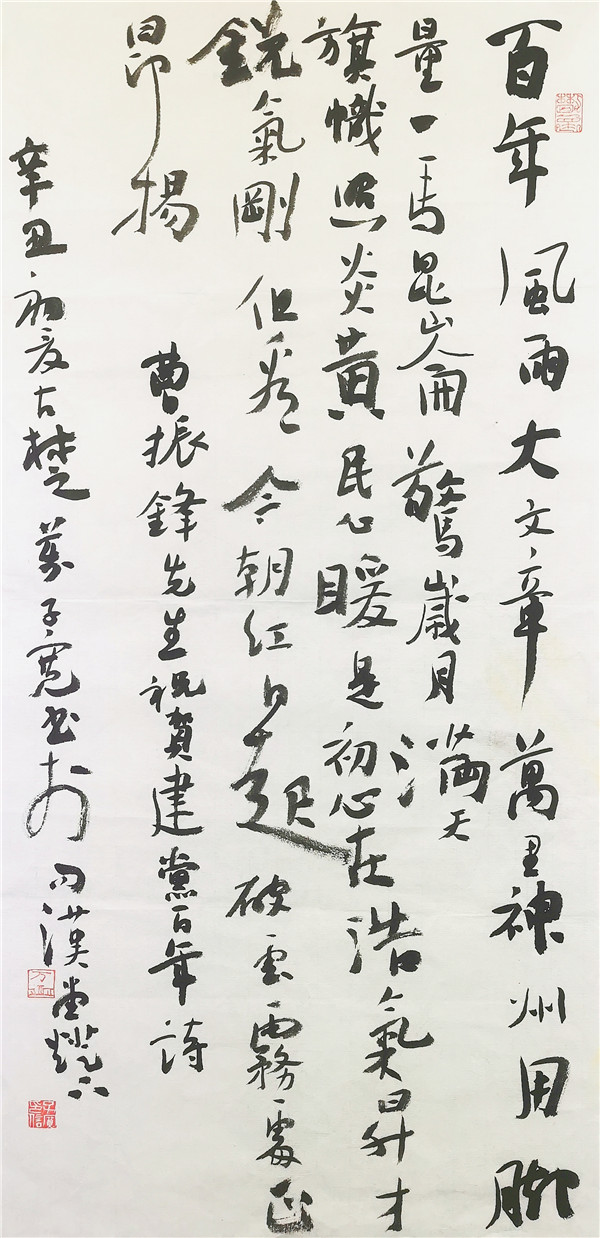 百年風雨大文章萬里神州用腳
量一馬昆崙驚歲月滿天
旗幟照炎黃民心暖是初心在浩氣昇才
銳氣剛但看今朝紅日起破雲霧處正
昂揚
曹振鋒先生祝賀建黨百年詩
辛丑初夏古楚萬子寬書於漢堂燈下